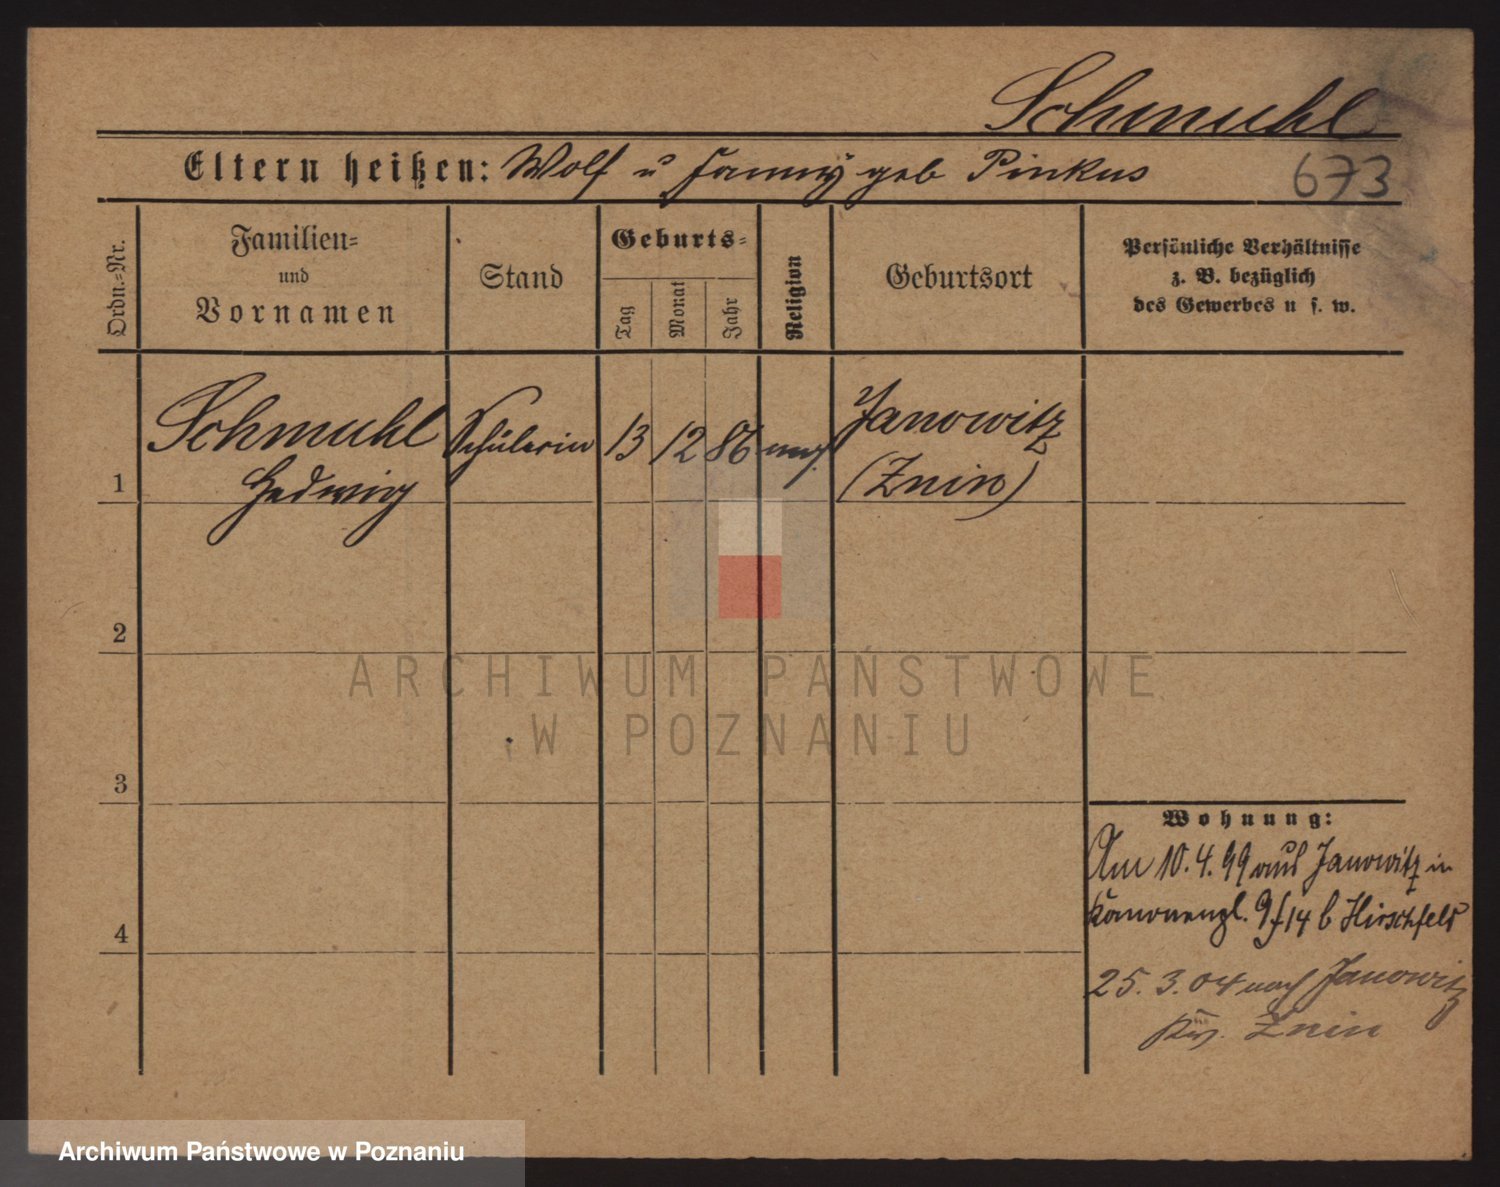 Schmuhl
Eltern heißen: Wolf u Fanny geb Pinkus
673
Ordn.-Nr.
Familien-
und
Vornamen
Stand
Geburts-
Tag
Monat
Jahr
Religion
Geburtsort
Persönliche Verhältnisse
z. B. bezüglich
des Gewerbes u s. w.
1
Schmuhl
Hedwig
Schülerin
13
12
86
mos.
Janowitz
(Znin)
2
3
4
Wohnung:
Am 10.4.99 aus Janowitz in
Kanonenpl. 9 14 b Hirschfeld
25.3.04 nach Janowitz
Znin
ARCHIWUM PAŃSTWOWE
W POZNANIU
Archiwum Państwowe w Poznaniu